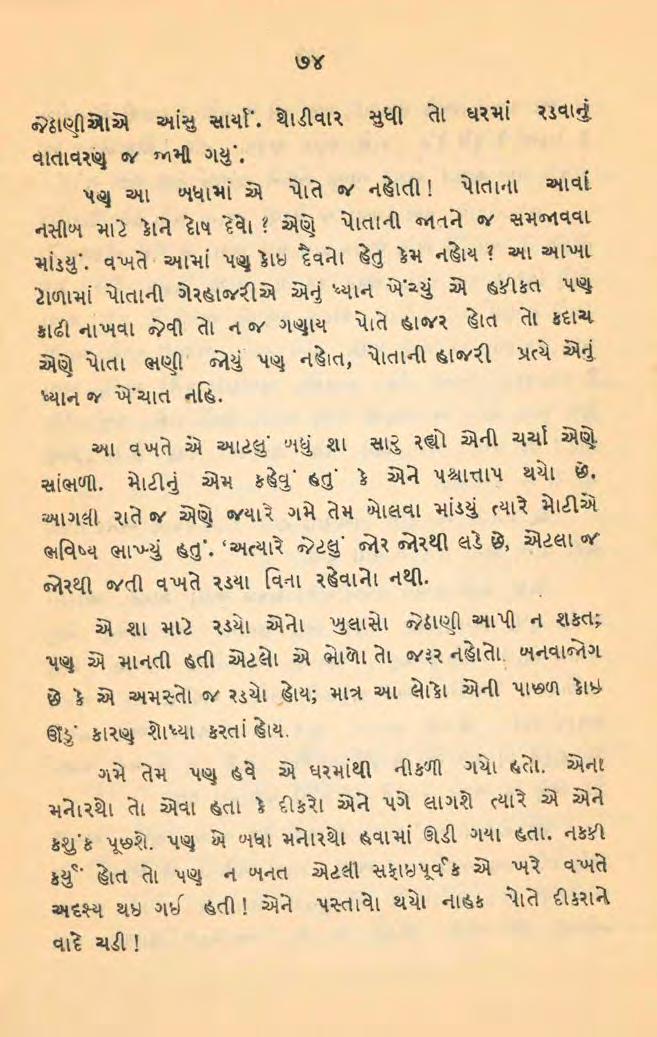 ૭૪
જેઠાણીઓએ આંસુ સાર્યાં. થોડીવાર સુધી તો ઘરમાં રડવાનું
વાતાવરણ જ જામી ગયું.
પણ આ બધામાં એ પોતે જ નહોતી! પોતાના આવાં
નસીબ માટે કોને દોષ દેવો? એણે પોતાની જાતને જ સમજાવવા
માંડયું. વખતે આમાં પણ કોઇ દૈવનો હેતુ કેમ નહોય? આ આખા
ટોળામાં પોતાની ગેરહાજરીએ એનું ધ્યાન ખેંચ્યું એ હકીકત પણ
કાઢી નાખવા જેવી તો ન જ ગણાય પોતે હાજર હોત તો કદાચ
એણે પોતા ભણી જોયું પણ નહોત, પોતાની હાજરી પ્રત્યે એનું
ધ્યાન જ ખેંચાત નહિ.
આ વખતે એ આટલું બધું શા સારુ રહ્યો એની ચર્ચા એણે
સાંભળી. મોટીનું એમ કહેવું હતું કે એને પશ્ચાત્તાપ થયો છે.
આગલી રાતે જ એણે જયારે ગમે તેમ બોલવા માંડયું ત્યારે મોટીએ
ભવિષ્ય ભાખ્યું હતું. ‘અત્યારે જેટલું જોર જોરથી લડે છે, એટલા જ
જોરથી જતી વખતે રડયા વિના રહેવાનો નથી.
એ શા માટે રડયો એનો ખુલાસો જેઠાણી આપી ન શકત;
પણ એ માનતી હતી એટલો એ ભોળો તો જરૂર નહોતો. બનવાજોગ
છે કે એ અમસ્તો જ રડયો હોય; માત્ર આ લોકો એની પાછળ કોઇ
ઊંડું કારણ શોધ્યા કરતાં હોય.
ગમે તેમ પણ હવે એ ઘરમાંથી નીકળી ગયો હતો. એના
મનોરથો તો એવા હતા કે દીકરો એને પગે લાગશે ત્યારે એ એને
કશુંક પૂછશે. પણ એ બધા મનોરથો હવામાં ઊડી ગયા હતા. નકકી
કર્યું હોત તો પણ ન બનત એટલી સફાઇપૂર્વક એ ખરે વખતે
અદશ્ય થઇ ગઈ હતી! એને પસ્તાવો થયો નાહક પોતે દીકરાને
વાદે ચડી!